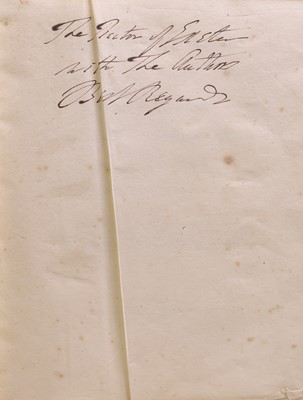 The Rector of Exeter
with The Authors
Best Regards